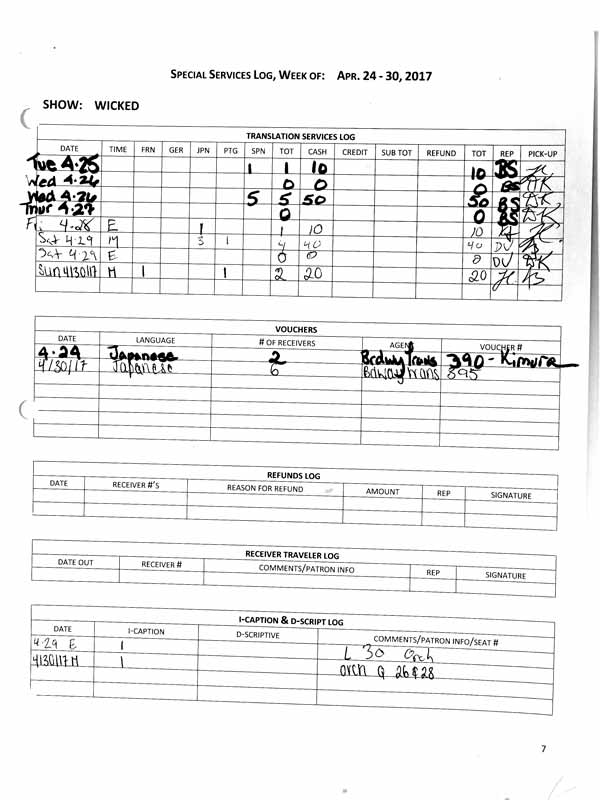 SPECIAL SERVICES LOG, WEEK OF: APR. 24 - 30, 2017
SHOW: WICKED
TRANSLATION SERVICES LOG
DATE TIME FRN GER JPN PTG SPN TOT CASH CREDIT SUB TOT REFUND TOT REP PICK-UP
Tue 4.25 1 1 10 10 BS
Wed 4.26 0 0 0 BS DK
Wed 4.26 5 5 50 50 BS DK
Thur 4.27 0 0 BS DK
Fri 4.28 E 1 1 10 10
Sat 4.29 M 3 1 4 40 40 DV
Sat 4.29 E 0 0 0 DV DK
Sun 4/30/17 M 1 1 2 20 20
VOUCHERS
DATE LANGUAGE # OF RECEIVERS AGENT VOUCHER #
4.29 Japanese 2 Brdwy Trans 390 - Kimura
4/30/17 Japanese 6 Bdway trans 395
REFUNDS LOG
DATE RECEIVER #'S REASON FOR REFUND AMOUNT REP SIGNATURE
RECEIVER TRAVELER LOG
DATE OUT RECEIVER # COMMENTS/PATRON INFO REP SIGNATURE
I-CAPTION & D-SCRIPT LOG
DATE I-CAPTION D-SCRIPTIVE COMMENTS/PATRON INFO/SEAT #
4.29 E 1 L 30 Orch
4/30/17 M 1 orch G 26 & 28
7